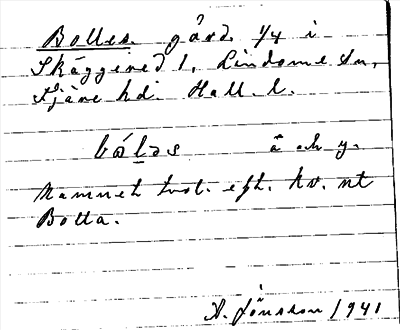 Bolles. gård. 1/4 i
Skäggered 1, Lindome sn,
Fjäre hd. Hall. l.
bɷ́l̠əs ä och y.
Namnet trol. eft. kv. nt
Botta.
A. Jönsson 1941